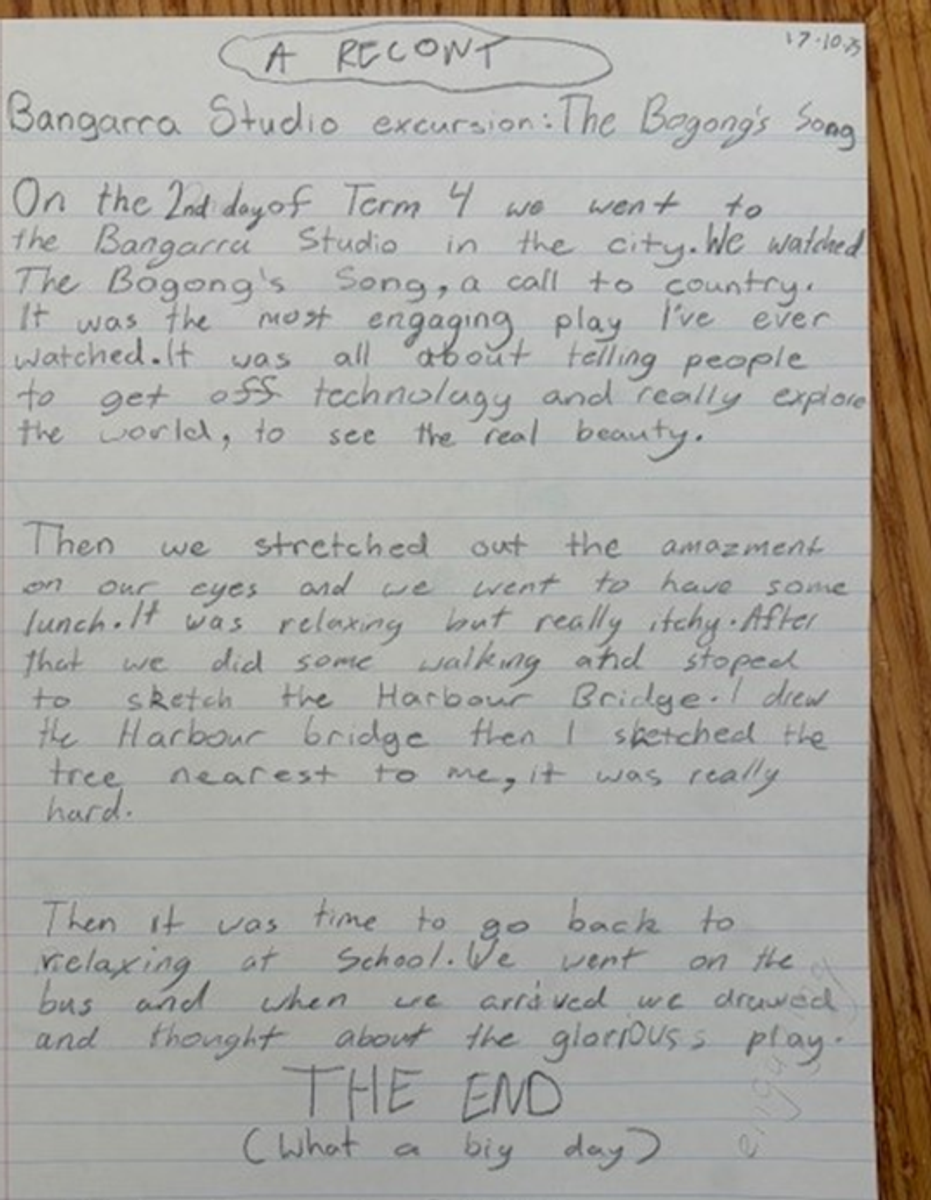 A RECONT
17.10.25
Bangarra Studio excursion: The Bogong's Song
On the 2nd day of Term 4 we went to
the Bangarra Studio in the city. We watched
The Bogong's Song, a call to country.
It was the most engaging play I've ever
watched. It was all about telling people
to get off technology and really explore
the world, to see the real beauty.
Then we stretched out the amazment
on our eyes and we went to have some
lunch. It was relaxing but really itchy. After
that we did some walking and stoped
to sketch the Harbour Bridge. I drew
the Harbour bridge then I sketched the
tree nearest to me, it was really
hard.
Then it was time to go back to
relaxing at School. We went on the
bus and when we arrived we drawed
and thought about the glorious s play.
THE END
(What a big day)